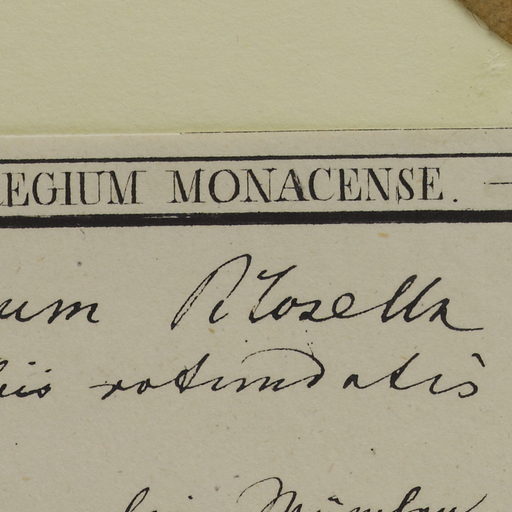 REGIUM MONACENSE.
um Pilosella
iis rotundatis
bei München